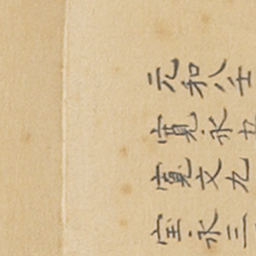 元和八壬
寛永
寛文九
宝永三